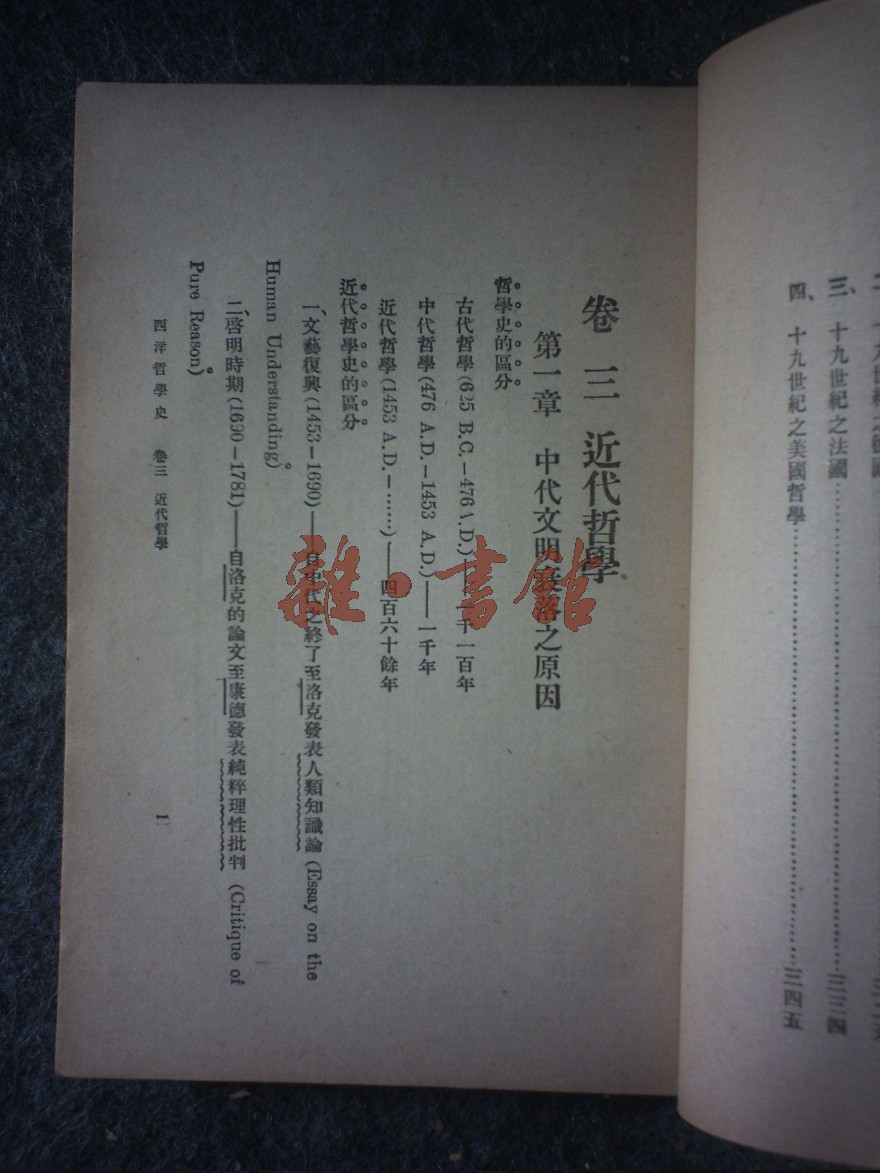 三、十九世紀之法國……三三四
四、十九世紀之美國哲學……三四五
卷三 近代哲學
第一章 中代文明衰落之原因
哲學史的區分
古代哲學(625 B.C.－476 A.D.)——一千一百年
中代哲學(476 A.D.－1453 A.D.)——一千年
近代哲學(1453 A.D.－……)——四百六十餘年
近代哲學史的區分
一、文藝復興(1453－1690)——自中代之終了至洛克發表人類知識論(Essay on the
Human Understanding)。
二、啓明時期(1690－1781)——自洛克的論文至康德發表純粹理性批判(Critique of
Pure Reason)。
西洋哲學史 卷三 近代哲學 1
雜·書館